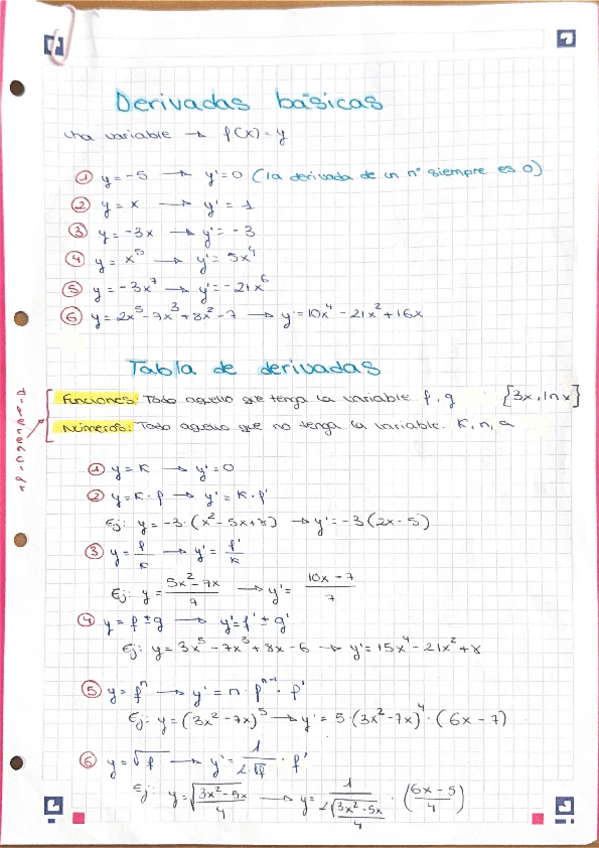 Derivadas básicas
una variable → f(x)=y
① y=-5 → y'=0 (la derivada de un nº siempre es 0)
② y=x → y'=1
③ y=-3x → y'=-3
④ y=x⁵ → y'=5x⁴
⑤ y=-3x⁷ → y'=-21x⁶
⑥ y=2x⁵-7x³+8x²-7 → y'=10x⁴-21x²+16x
Tabla de derivadas
Funciones: Todo aquello que tenga la variable f, g {3x, ln x}
Números: Todo aquello que no tenga la variable. K, n, a
① y=K → y'=0
② y=K·f → y'=K·f'
Ej: y=-3·(x²-5x+8) → y'=-3(2x-5)
③ y=f/K → y'=f'/K
Ej: y=(5x²-7x)/7 → y'=(10x-7)/7
④ y=f±g → y'=f'±g'
Ej: y=3x⁵-7x³+8x-6 → y'=15x⁴-21x²+8
⑤ y=fⁿ → y'=n·fⁿ⁻¹·f'
Ej: y=(3x²-7x)⁵ → y'=5·(3x²-7x)⁴·(6x-7)
⑥ y=√f → y'=1/(2√f)·f'
Ej: y=√((3x²-5x)/4) → y=1/(2√((3x²-5x)/4))·((6x-5)/4)